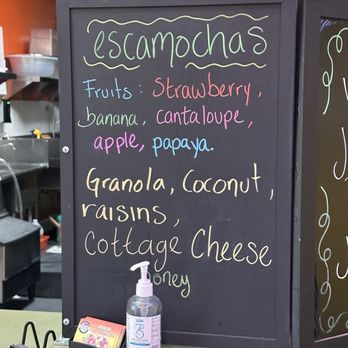 escamochas
Fruits: Strawberry,
banana, cantaloupe,
apple, papaya.
Granola, Coconut,
raisins,
Cottage Cheese
oney